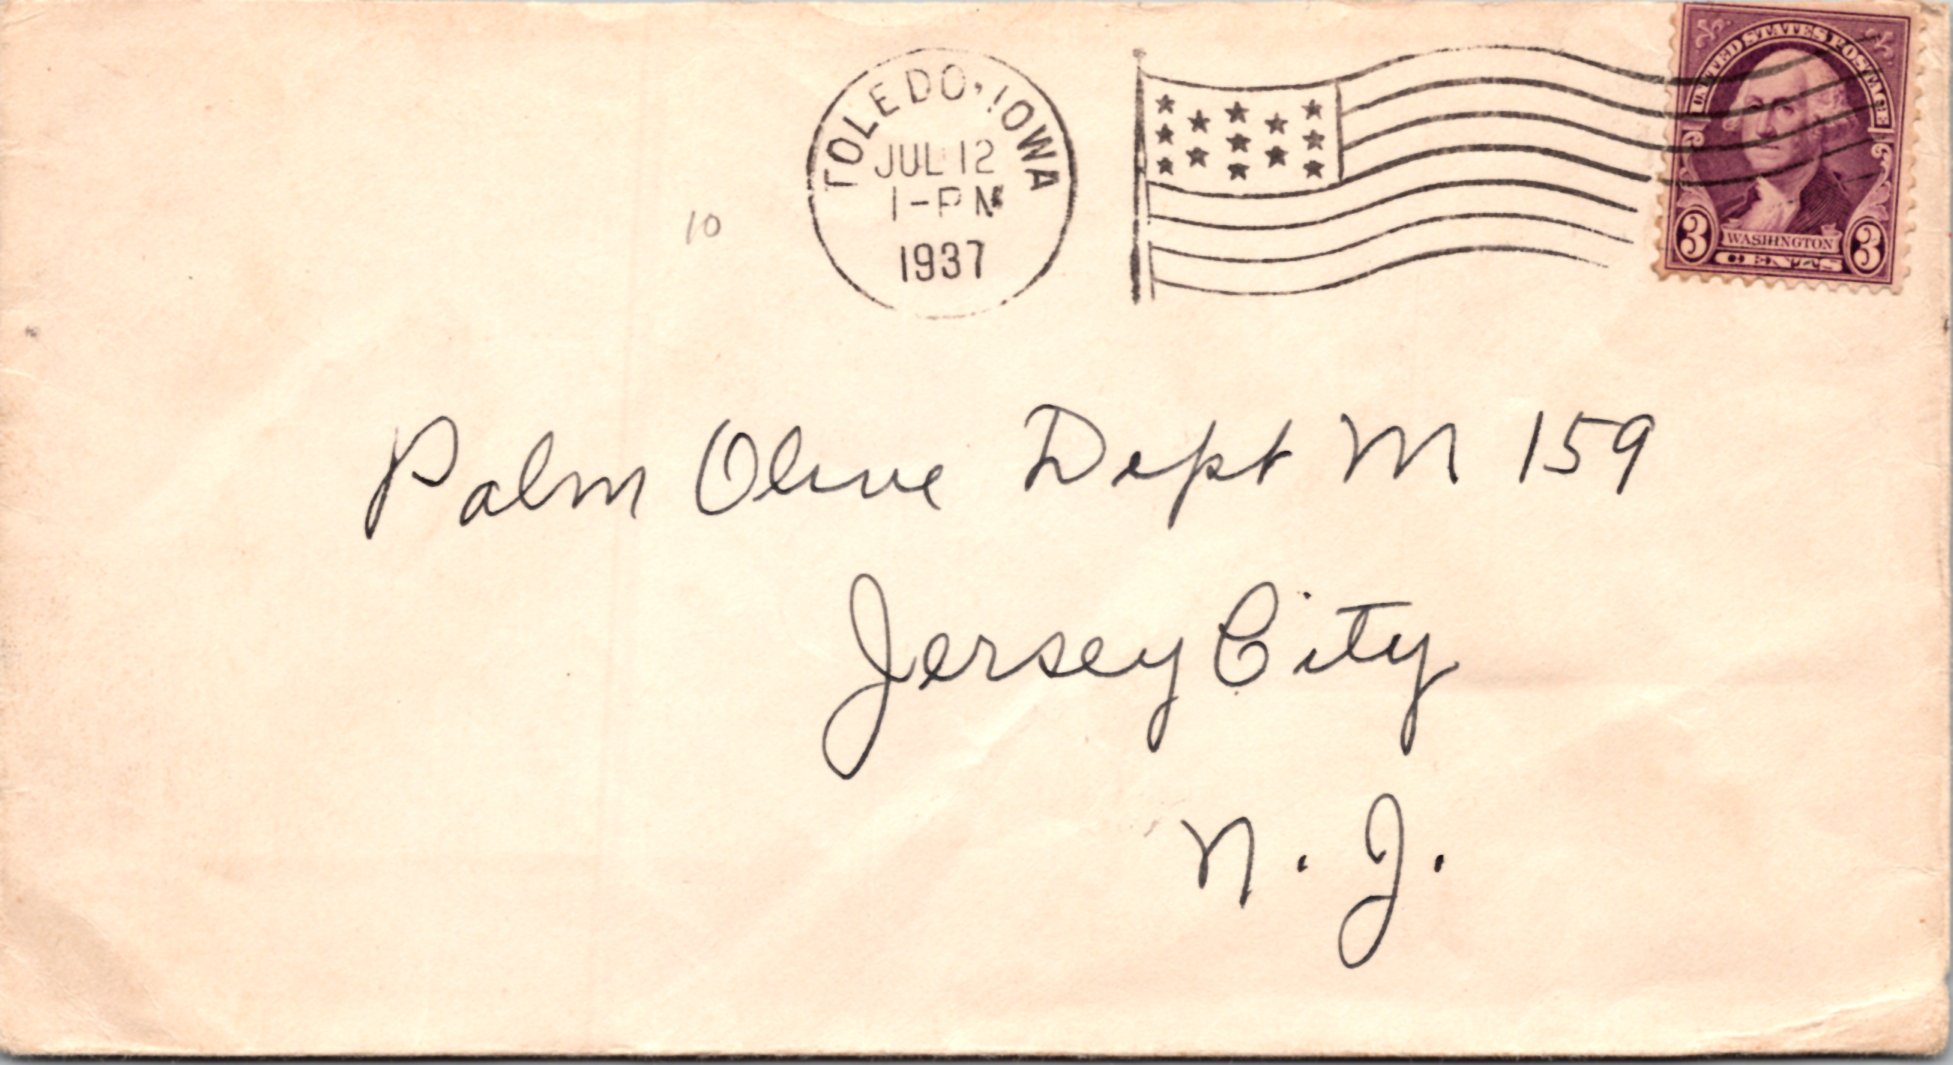 TOLEDO, IOWA
JUL 12
1-PM
1937
UNITED STATES POSTAGE
3 WASHINGTON 3
CENTS
10
Palm Olive Dept M 159
Jersey City
N. J.